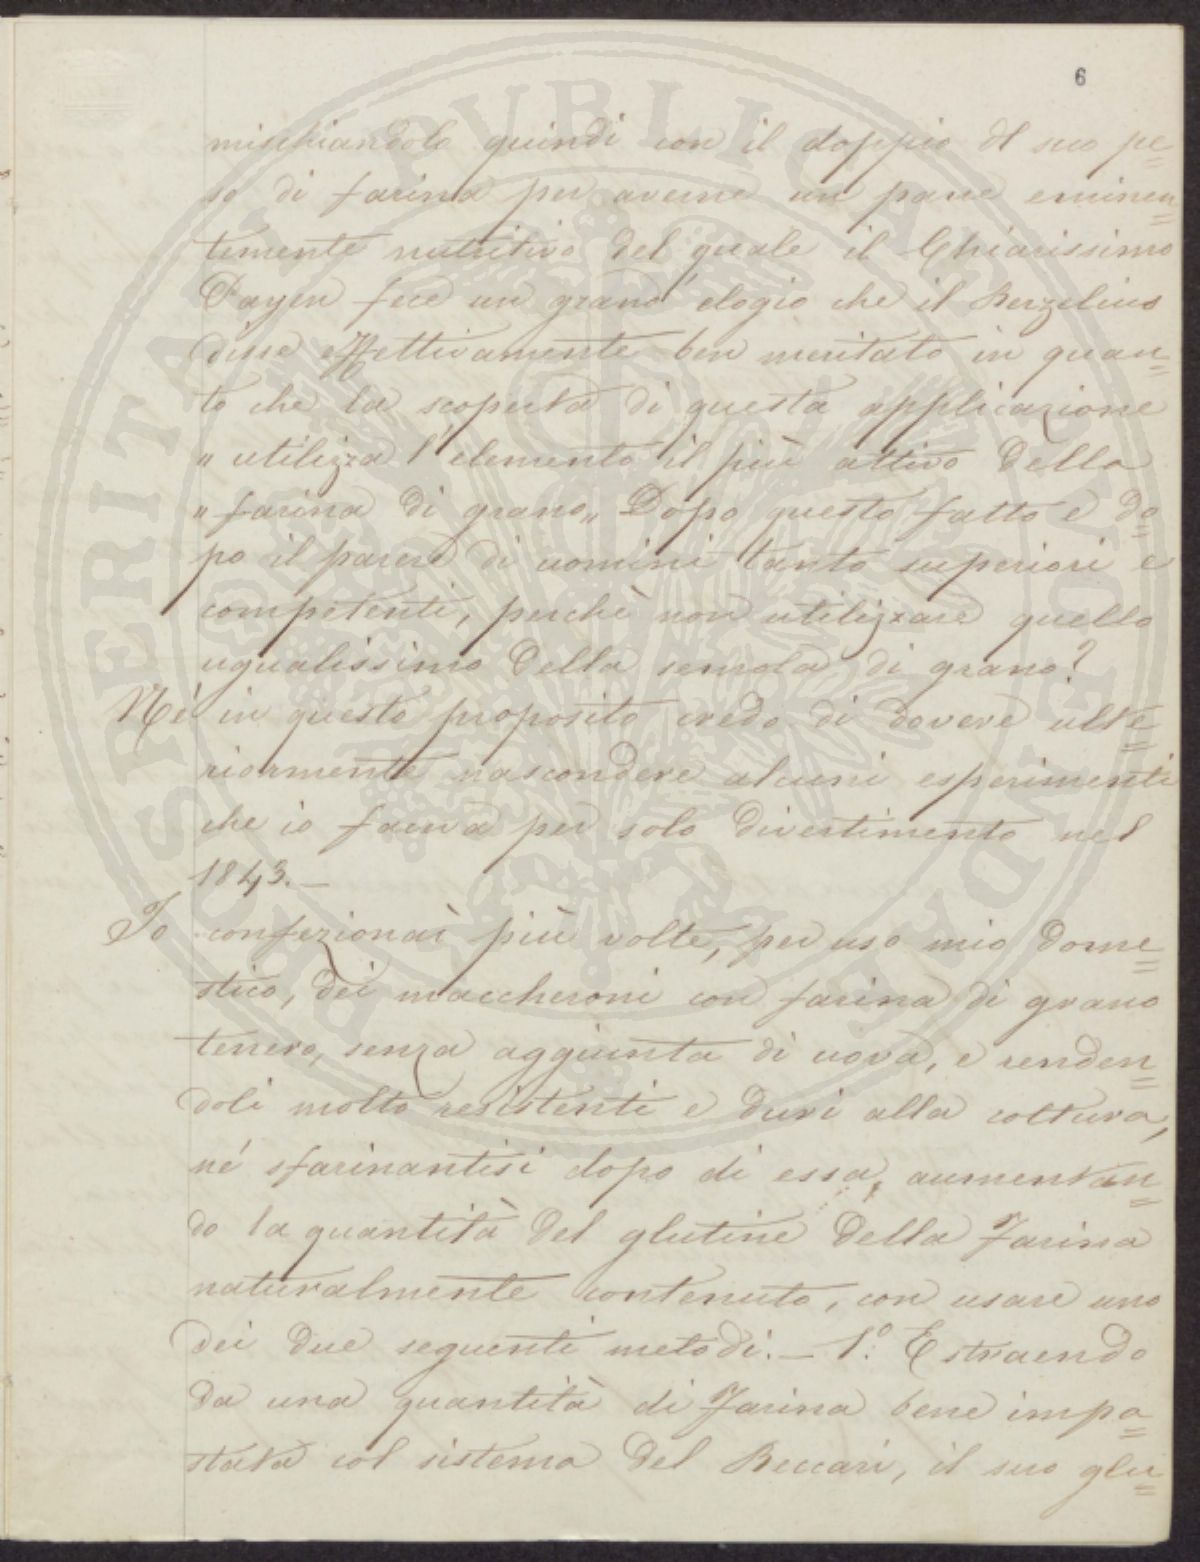 6
mischiandolo quindi con il doppio del suo pe=
so di farina per averne un pane eminen=
temente nutritivo del quale il Chiarissimo
Payen fece un grand'elogio che il Berzelius
disse effettivamente ben meritato in quan=
to che la scoperta di questa applicazione
„ utilizza l'elemento il più attivo della
„ farina di grano„ Dopo questo fatto e do=
po il parere di uomini tanto superiori e
competenti, perchè non utilizzare quello
ugualissimo della semola di grano?
Nè in questo proposito credo di dovere ulte=
riormente nascondere alcuni esperimenti
che io faceva per solo divertimento nel
1843.—
Io confezionai più volte, per uso mio dome=
stico, dei maccheroni con farina di grano
tenero, senza aggiunta di uova, e renden=
doli molto resistenti e duri alla cottura,
né sfarinantisi dopo di essa, aumentan=
do la quantità del glutine della Farina
naturalmente contenuto, con usare uno
dei due seguenti metodi.— 1.° Estraendo
da una quantità di Farina bene impa=
stata col sistema del Beccari, il suo glu=
PROSPERITATI PVBLICAE AVGENDAE